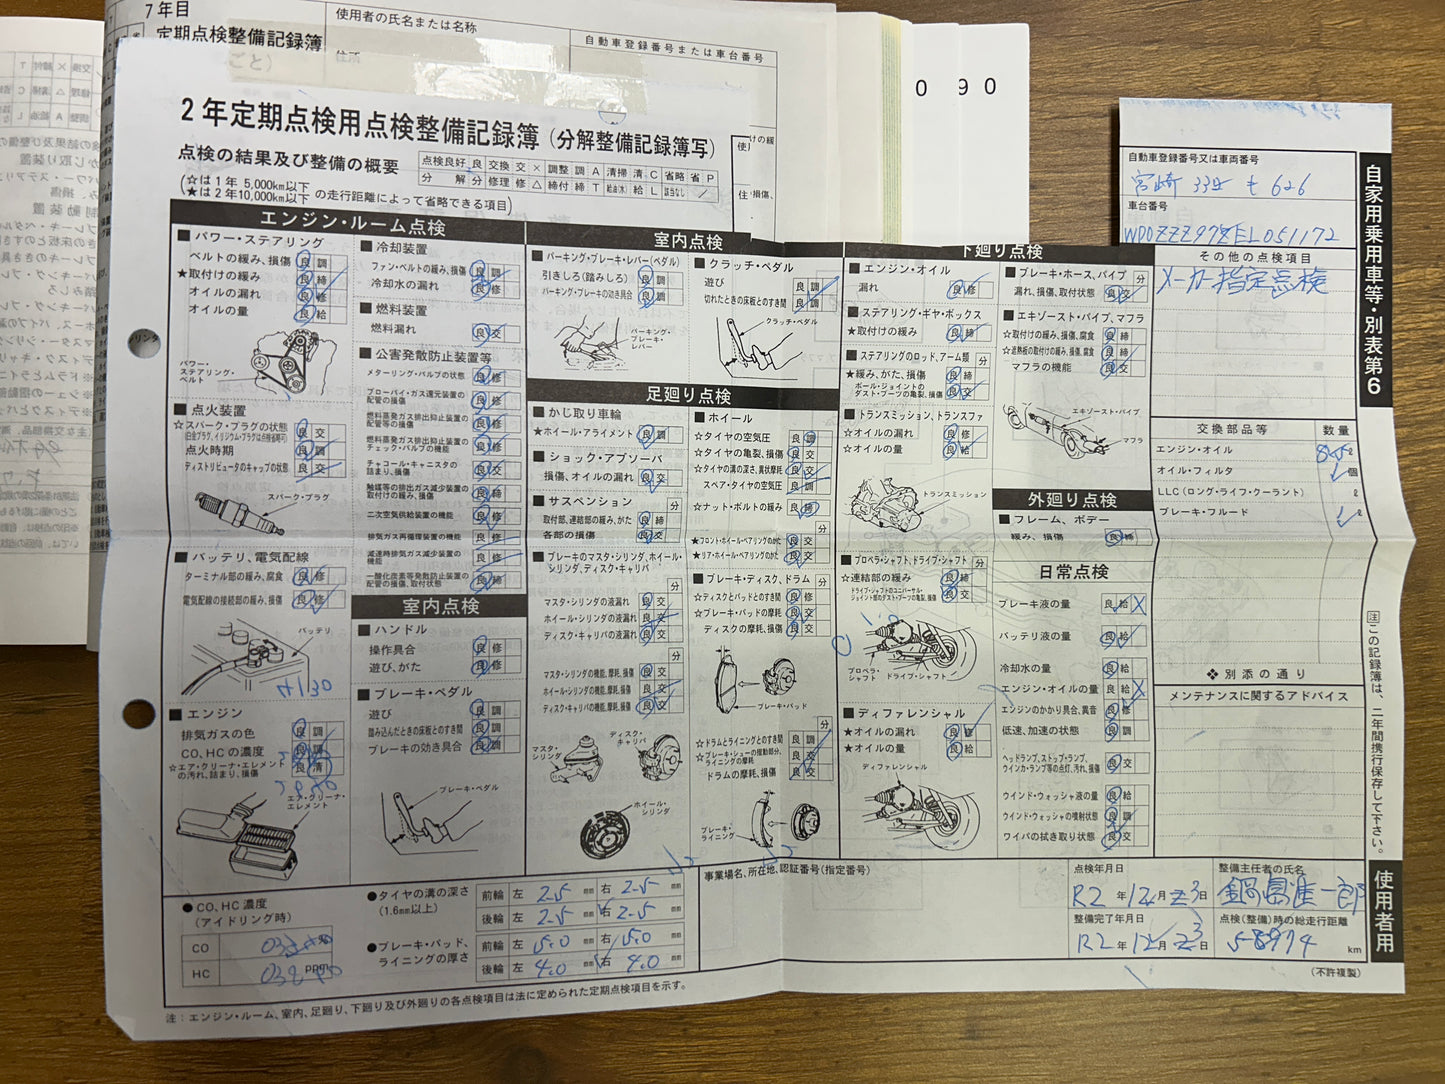 7年目
定期点検整備記録簿
使用者の氏名または名称
自動車登録番号または車台番号
ごと)
住所
0 90
2年定期点検用点検整備記録簿(分解整備記録簿写)
点検の結果及び整備の概要
(☆は1年 5,000km以下
★は2年10,000km以下 の走行距離によって省略できる項目)
点検良好 良 交換 交 × 調整 調 A 清掃 清 C 省略 省 P
分解 分 修理 修 △ 締付 締 T 給油(水) 給 L 該当なし ／
エンジン・ルーム点検
■パワー・ステアリング
ベルトの緩み、損傷 良 調
★取付けの緩み 良 締
オイルの漏れ 良 修
オイルの量 良 給
パワー・ステアリング・ベルト
■点火装置
☆スパーク・プラグの状態 良 交
(白金プラグ、イリジウム・プラグは点検省略可)
点火時期 良 調
ディストリビュータのキャップの状態 良 交
スパーク・プラグ
■バッテリ、電気配線
ターミナル部の緩み、腐食 良 修
電気配線の接続部の緩み、損傷 良 修
バッテリ
H130
■エンジン
排気ガスの色 良 調
CO、HCの濃度 良 調
☆エア・クリーナ・エレメントの汚れ、詰まり、損傷 良 清
エア・クリーナ・エレメント
■冷却装置
ファン・ベルトの緩み、損傷 良 調
冷却水の漏れ 良 修
■燃料装置
燃料漏れ 良 交
■公害発散防止装置等
メターリング・バルブの状態 良 修
ブローバイ・ガス還元装置の配管の損傷 良 修
燃料蒸発ガス排出抑止装置の配管等の損傷 良 修
燃料蒸発ガス排出抑止装置のチェック・バルブの機能 良 修
チャコール・キャニスタの詰まり、損傷 良 交
触媒等の排出ガス減少装置の取付けの緩み、損傷 良 修
二次空気供給装置の機能 良 修
排気ガス再循環装置の機能 良 修
減速時排気ガス減少装置の機能 良 修
一酸化炭素等発散防止装置の配管の損傷、取付状態 良 修
室内点検
■ハンドル
操作具合 良 修
遊び、がた 良 修
■ブレーキ・ペダル
遊び 良 調
踏み込んだときの床板とのすき間 良 調
ブレーキの効き具合 良 調
ブレーキ・ペダル
室内点検
■パーキング・ブレーキ・レバー(ペダル)
引きしろ(踏みしろ) 良 調
パーキング・ブレーキの効き具合 良 調
パーキング・ブレーキ・レバー
■クラッチ・ペダル
遊び 良 調
切れたときの床板とのすき間 良 調
クラッチ・ペダル
足廻り点検
■かじ取り車輪
★ホイール・アライメント 良 調
■ショック・アブソーバ
損傷、オイルの漏れ 良 交
■サスペンション 分
取付部、連結部の緩み、がた 良 締
各部の損傷 良 交
■ブレーキのマスタ・シリンダ、ホイール・シリンダ、ディスク・キャリパ 分
マスタ・シリンダの液漏れ 良 交
ホイール・シリンダの液漏れ 良 交
ディスク・キャリパの液漏れ 良 交
分
マスタ・シリンダの機能、摩耗、損傷 良 交
ホイール・シリンダの機能、摩耗、損傷 良 交
ディスク・キャリパの機能、摩耗、損傷 良 交
マスタ・シリンダ
ディスク・キャリパ
ホイール・シリンダ
■ホイール 分
☆タイヤの空気圧 良 調
☆タイヤの亀裂、損傷 良 交
☆タイヤの溝の深さ、異状摩耗 良 交
スペア・タイヤの空気圧 良 調
☆ナット・ボルトの緩み 良 締
★フロント・ホイール・ベアリングのがた 良 交
★リア・ホイール・ベアリングのがた 良 交
■ブレーキ・ディスク、ドラム 分
☆ディスクとパッドとのすき間 良 修
☆ブレーキ・パッドの摩耗 良 交
ディスクの摩耗、損傷 良 交
ブレーキ・パッド
分
☆ドラムとライニングとのすき間 良 調
☆ブレーキ・シューの摺動部分、ライニングの摩耗 良 交
ドラムの摩耗、損傷 良 交
ブレーキ・ライニング
下廻り点検
■エンジン・オイル
漏れ 良 修
■ステアリング・ギヤ・ボックス
★取付けの緩み 良 締
■ステアリングのロッド、アーム類 分
★緩み、がた、損傷 良 締
ボール・ジョイントのダスト・ブーツの亀裂、損傷 良 交
■トランスミッション、トランスファ
☆オイルの漏れ 良 修
☆オイルの量 良 給
トランスミッション
■プロペラ・シャフト、ドライブ・シャフト 分
☆連結部の緩み 良 締
ドライブ・シャフトのユニバーサル・ジョイント部のダスト・ブーツの亀裂、損傷 良 交
プロペラ・シャフト
ドライブ・シャフト
■ディファレンシャル
★オイルの漏れ 良 修
★オイルの量 良 給
ディファレンシャル
■ブレーキ・ホース、パイプ 分
漏れ、損傷、取付状態 良 交
■エキゾースト・パイプ、マフラ
☆取付けの緩み、損傷、腐食 良 締
☆遮熱板の取付けの緩み、損傷、腐食 良 締
マフラの機能 良 交
エキゾースト・パイプ
マフラ
外廻り点検
■フレーム、ボデー
緩み、損傷 良 締
日常点検
ブレーキ液の量 良 給 X
バッテリ液の量 良 給
冷却水の量 良 給
エンジン・オイルの量 良 給 X
エンジンのかかり具合、異音 良 修
低速、加速の状態 良 調
ヘッドランプ、ストップ・ランプ、ウインカ・ランプ等の点灯、汚れ、損傷 良 交
ウインド・ウォッシャ液の量 良 給
ウインド・ウォッシャの噴射状態 良 調
ワイパの拭き取り状態 良 交
自動車登録番号又は車両番号
宮崎 33 も 626
車台番号
WDDZZZ97ZEL051172
その他の点検項目
メーカー指定点検
交換部品等 数量
エンジン・オイル 8.5ℓ
オイル・フィルタ ✓個
LLC(ロング・ライフ・クーラント) ℓ
ブレーキ・フルード ✓ℓ
❖別添の通り
メンテナンスに関するアドバイス
自家用乗用車等・別表第6
注 この記録簿は、二年間携行保存して下さい。
使用者用
●CO、HC濃度
(アイドリング時)
CO %
HC PPM
●タイヤの溝の深さ
(1.6mm以上)
前輪 左 2.5 mm 右 2.5 mm
後輪 左 2.5 mm 右 2.5 mm
●ブレーキ・パッド、ライニングの厚さ
前輪 左 5.0 mm 右 5.0 mm
後輪 左 4.0 mm 右 4.0 mm
事業場名、所在地、認証番号(指定番号)
点検年月日
R2 年 12 月 23 日
整備完了年月日
R2 年 12 月 23 日
整備主任者の氏名
点検(整備)時の総走行距離
58974 km
(不許複製)
注:エンジン・ルーム、室内、足廻り、下廻り及び外廻りの各点検項目は法に定められた定期点検項目を示す。